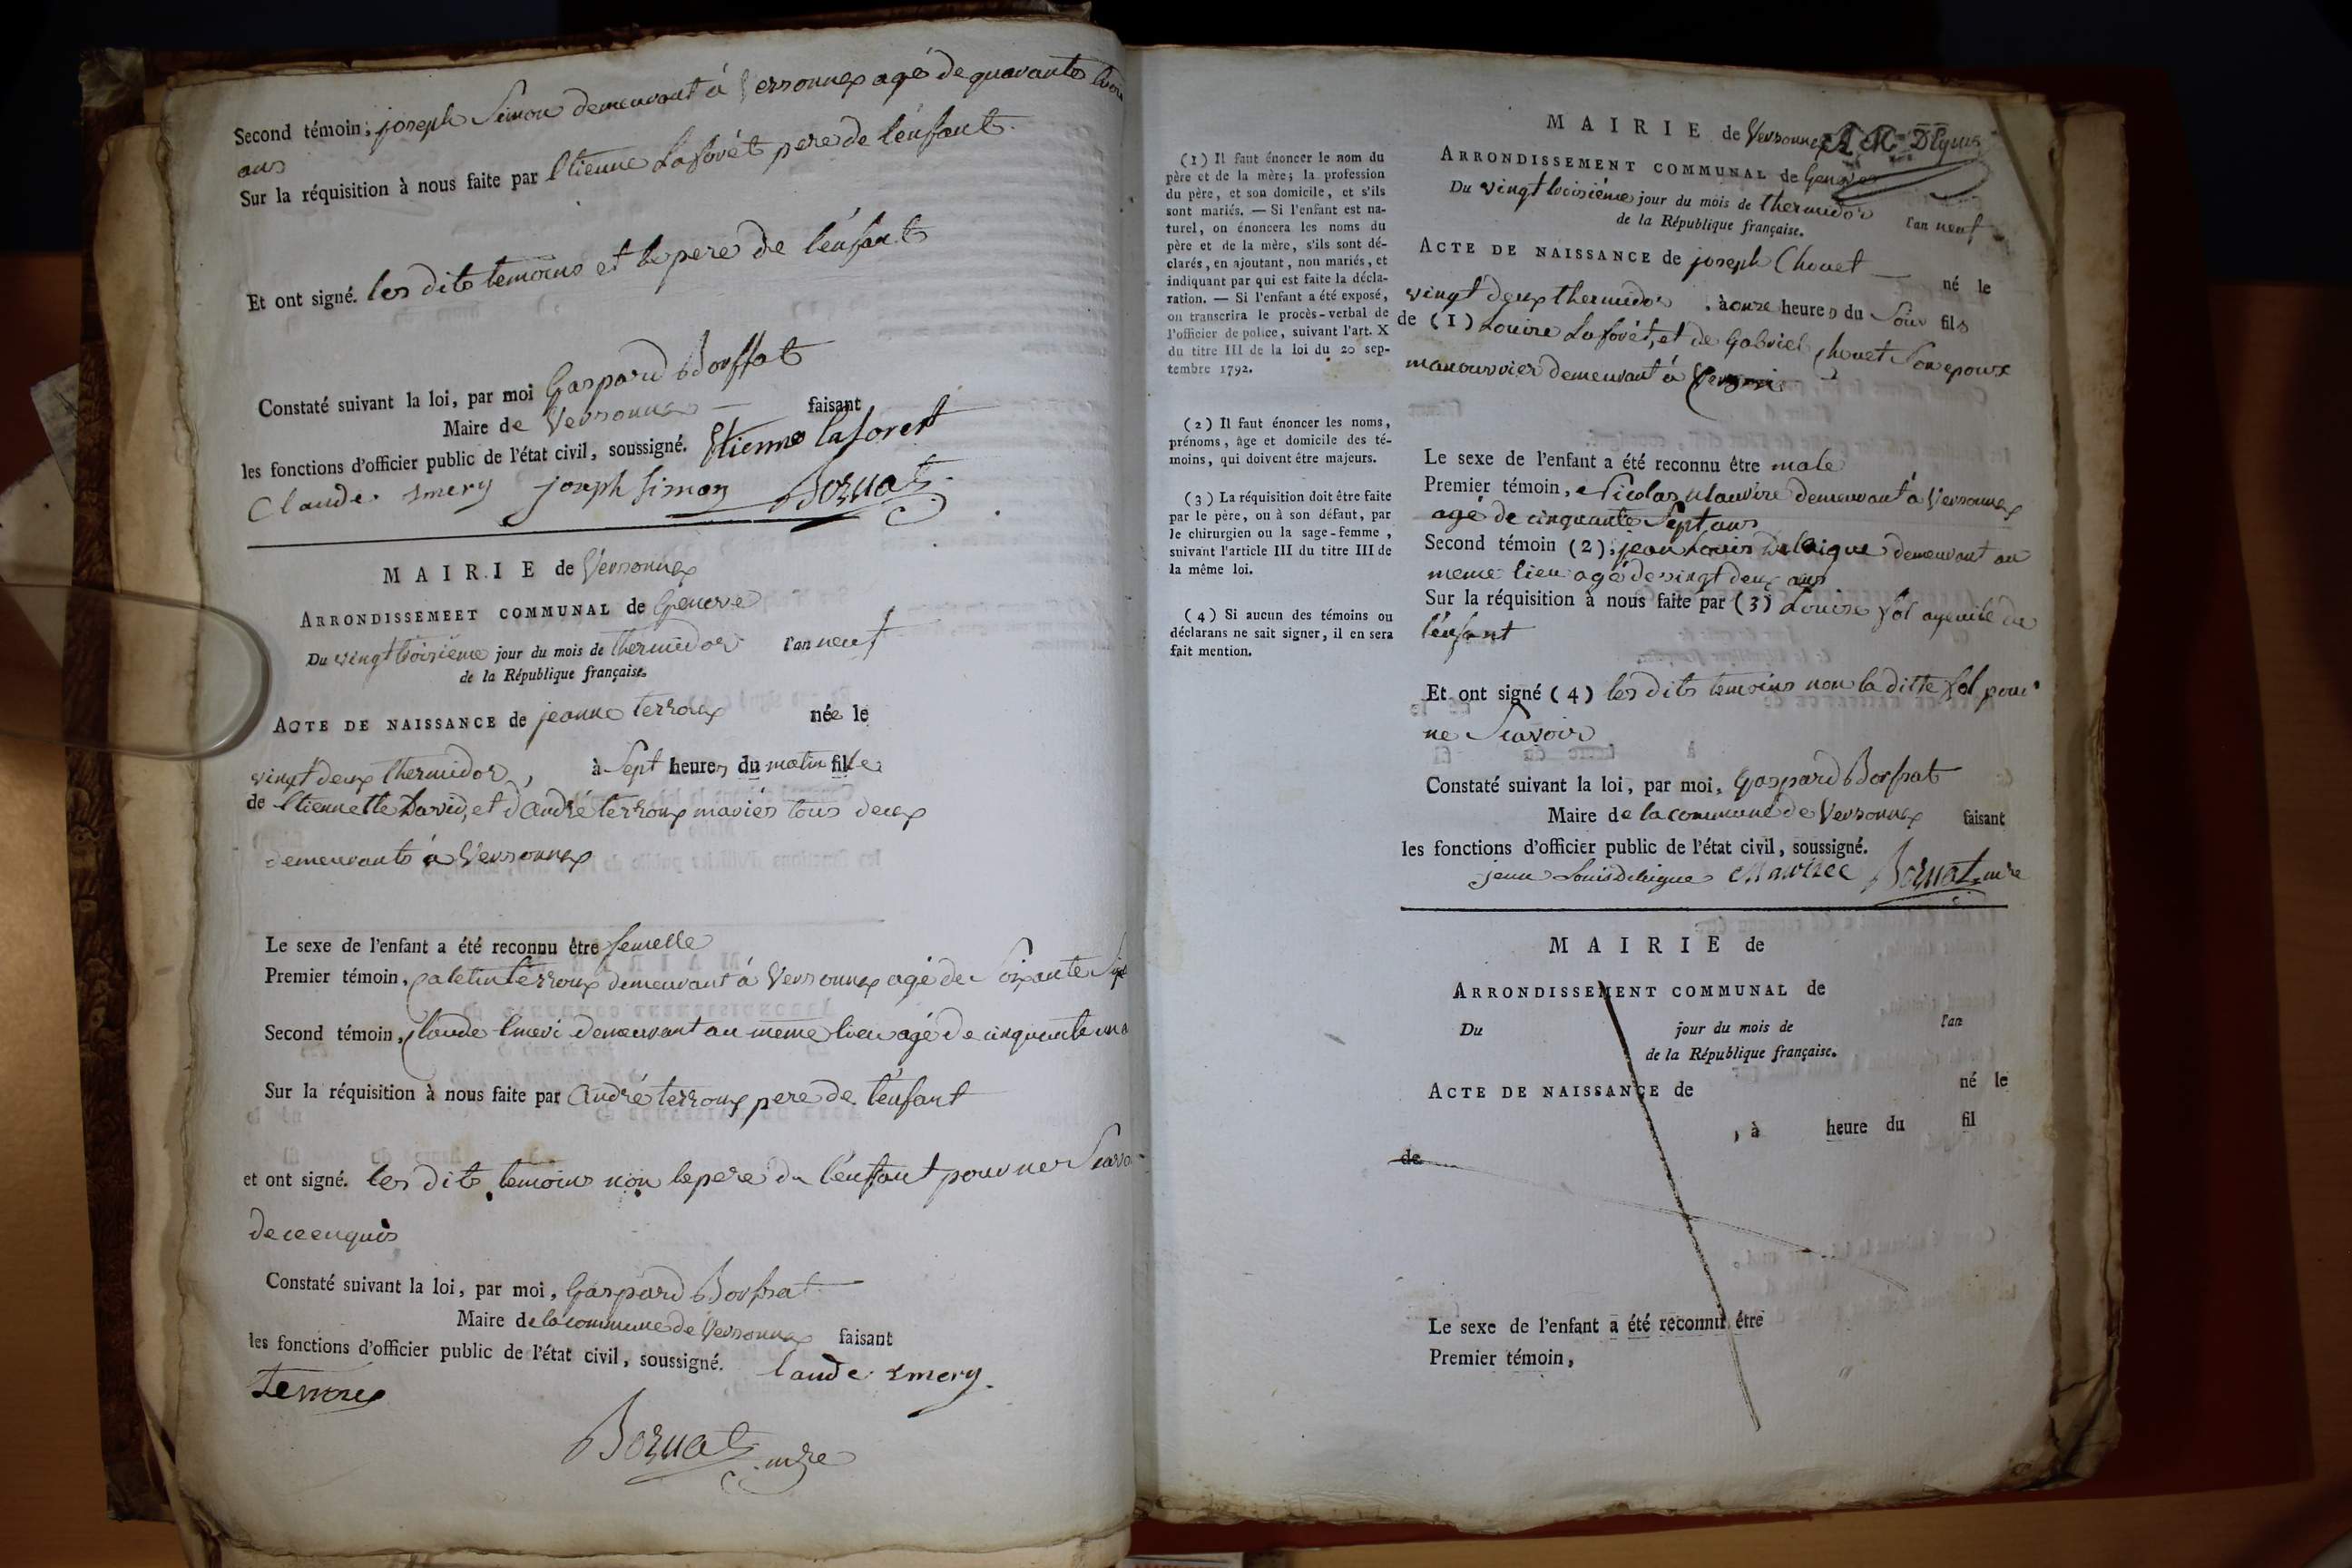 Second témoin, joseph Simon demeurant á Versonnex agé de quarante trois
ans
Sur la réquisition à nous faite par Etienne Laforét pere de lénfant.
Et ont signé. les dits temoins et le pere de lénfant
Constaté suivant la loi, par moi Gaspard Bossat
Maire de Versonnex — faisant
les fonctions d'officier public de l'état civil, soussigné. Etienne laforest
Claude Emery joseph Simon
MAIRIE de Versonnex
ARRONDISSEMEET COMMUNAL de Géneve
Du vingt troisiéme jour du mois de thermidor l'an neuf
de la République française.
ACTE DE NAISSANCE de jeanne terroux née le
vingt deux thermidor, à Sept heures du matin fille
de Etiennette David, et d'andré terroux mariés tous deux
demeurants á Versonnex
Le sexe de l'enfant a été reconnu être femelle
Premier témoin, terroux demeurant á Versonnex agé de Soixante Six
Second témoin, Claude Emeri demeurant au méme lieu agé de cinquante un
Sur la réquisition à nous faite par andré terroux pere de lénfant
et ont signé. les dits temoins non le pere de lénfant pour ne Scavoir
de ce enquis
Constaté suivant la loi, par moi, Gaspard Bossat
Maire de la commune de Versonnex faisant
les fonctions d'officier public de l'état civil, soussigné. laude Emery.
terroux
mre
(1) Il faut énoncer le nom du
père et de la mère; la profession
du père, et son domicile, et s'ils
sont mariés. — Si l'enfant est na-
turel, on énoncera les noms du
père et de la mère, s'ils sont dé-
clarés, en ajoutant, non mariés, et
indiquant par qui est faite la décla-
ration. — Si l'enfant a été exposé,
on transcrira le procès-verbal de
l'officier de police, suivant l'art. X
du titre III de la loi du 20 sep-
tembre 1792.
(2) Il faut énoncer les noms,
prénoms, âge et domicile des té-
moins, qui doivent être majeurs.
(3) La réquisition doit être faite
par le père, ou à son défaut, par
le chirurgien ou la sage-femme,
suivant l'article III du titre III de
la même loi.
(4) Si aucun des témoins ou
déclarans ne sait signer, il en sera
fait mention.
MAIRIE de Versonnex
ARRONDISSEMENT COMMUNAL de Geneve
Du vingt troisiéme jour du mois de thermidor l'an neuf
de la République française.
ACTE DE NAISSANCE de joseph Chouet — né le
vingt deux thermidor, à onze heures du Soir fils
de (1) Louise Laforét, et de Gabriel Chouet Son epoux
manouvrier demeurant á
Le sexe de l'enfant a été reconnu être male
Premier témoin, Nicolas Mauvire demeurant á Versonnex
agé de cinquante Sept ans
Second témoin (2), jean Louis Delaigue demeurant au
meme lieu agé de vingt deux ans
Sur la réquisition à nous faite par (3) Louise fol ayeule de
lénfant
Et ont signé (4) les dits temoins non la ditte fol pour
ne Scavoir
Constaté suivant la loi, par moi, Gaspard Bossat
Maire de la commune de Versonnex faisant
les fonctions d'officier public de l'état civil, soussigné.
jean Louis Delaigue mre
MAIRIE de
ARRONDISSEMENT COMMUNAL de
Du jour du mois de l'an
de la République française.
ACTE DE NAISSANCE de né le
, à heure du fil
de
Le sexe de l'enfant a été reconnu être
Premier témoin,